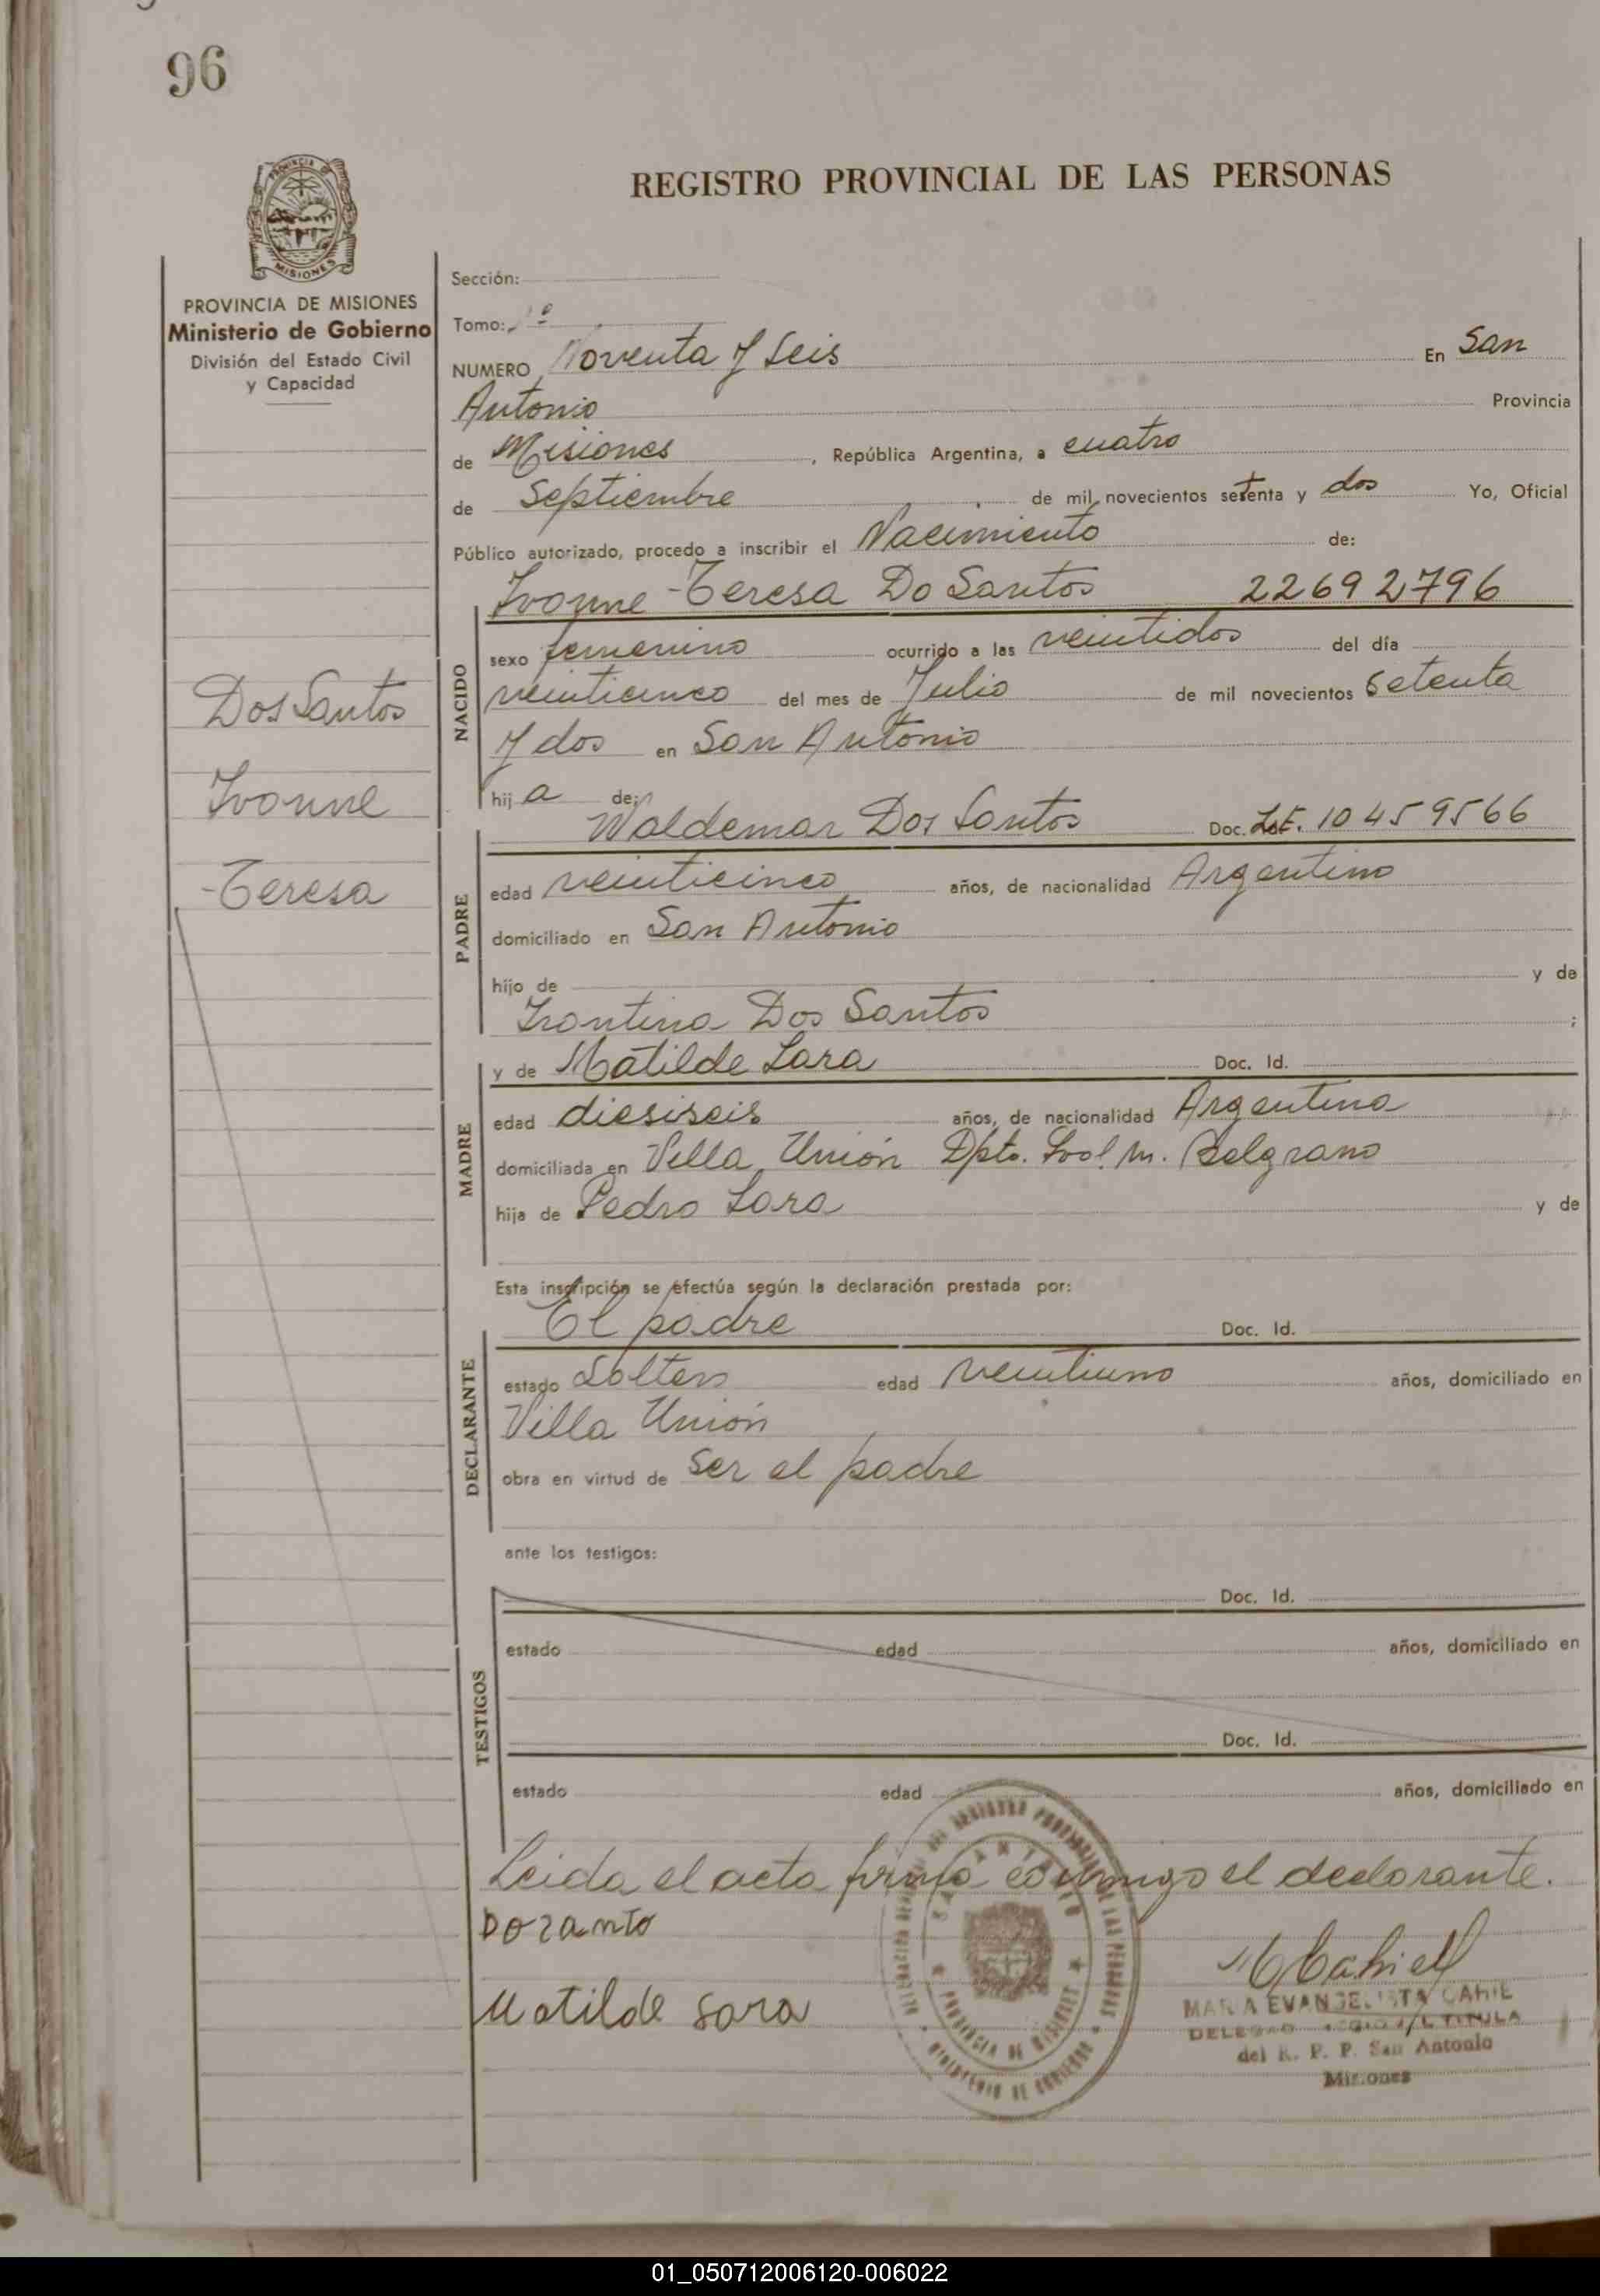 96
REGISTRO PROVINCIAL DE LAS PERSONAS
PROVINCIA DE MISIONES
Ministerio de Gobierno
División del Estado Civil
y Capacidad
Dos Santos
Ivonne
Teresa
Sección:
Tomo: 1º
NUMERO Noventa y Seis En San
Antonio Provincia
de Misiones, República Argentina, a cuatro
de Septiembre de mil novecientos setenta y dos Yo, Oficial
Público autorizado, procedo a inscribir el Nacimiento de:
Ivonne Teresa Do Santos 22692796
NACIDO
sexo femenino ocurrido a las veintidos del día
veinticinco del mes de Julio de mil novecientos setenta
y dos en San Antonio
hija de:
Waldemar Dos Santos Doc. L.E. 10459566
PADRE
edad veinticinco años, de nacionalidad Argentino
domiciliado en San Antonio
hijo de y de
Dos Santos ;
y de Matilde Lara Doc. Id.
MADRE
edad diesiseis años, de nacionalidad Argentina
domiciliada en Villa Unión Dpto. M. Belgrano
hija de Pedro Lara y de
Esta inscripción se efectúa según la declaración prestada por:
El padre Doc. Id.
DECLARANTE
estado Soltero edad veintiuno años, domiciliado en
Villa Unión
obra en virtud de Ser el padre
ante los testigos:
Doc. Id.
TESTIGOS
estado edad años, domiciliado en
Doc. Id.
estado edad años, domiciliado en
Leida el acta firma conmigo el declarante.
Matilde Sara
MARIA EVANGELISTA CAHIE
del R. P. P. San Antonio
Misiones
PROVINCIA DE MISIONES
MINISTERIO DE GOBIERNO
01_050712006120-006022